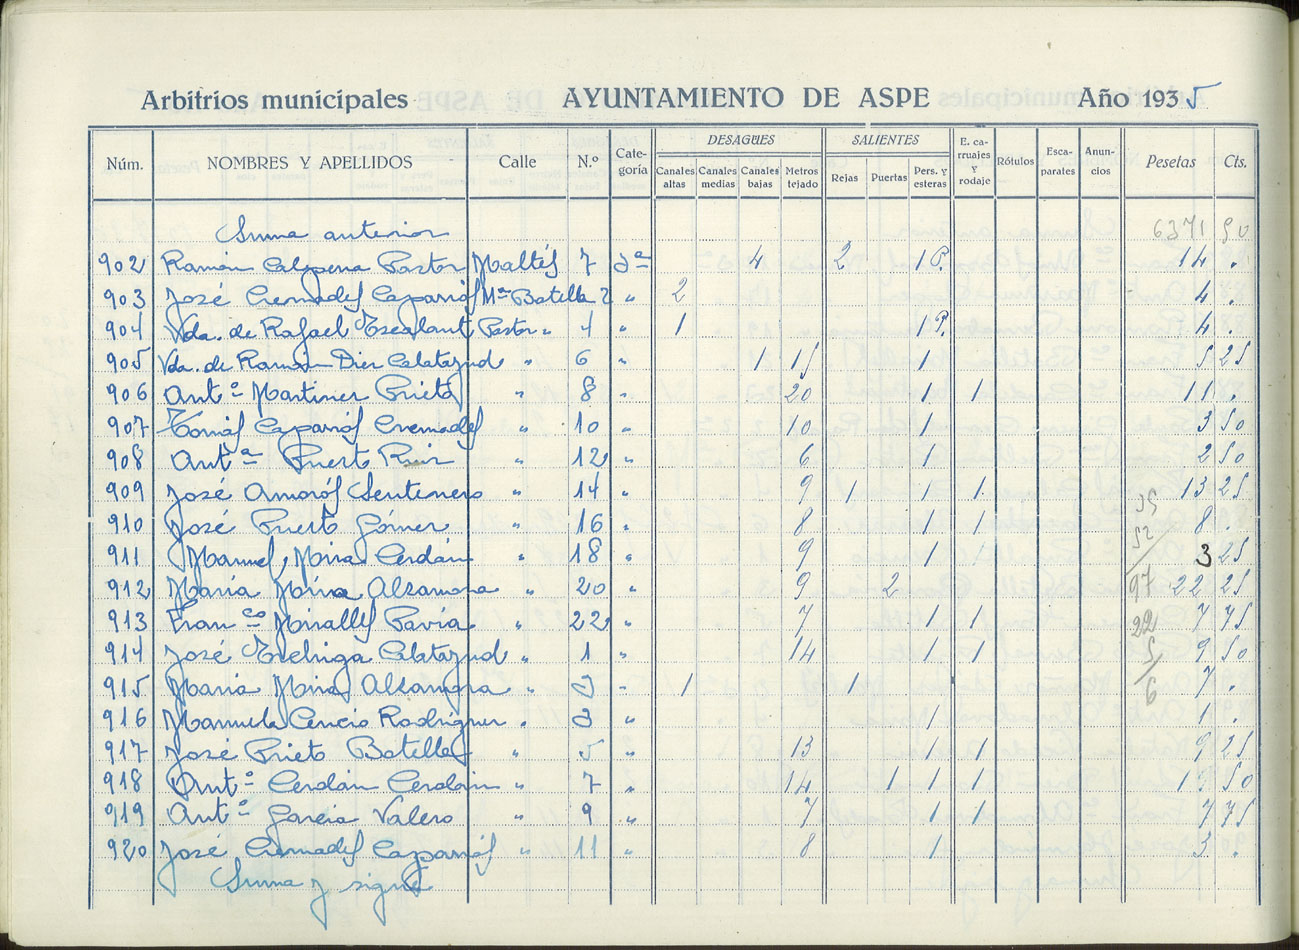 Arbitrios municipales AYUNTAMIENTO DE ASPE Año 1935
Núm. NOMBRES Y APELLIDOS Calle N.º Cate-goría DESAGÜES Canales altas Canales medias Canales bajas Metros tejado SALIENTES Rejas Puertas Pers. y esteras E. ca-rruajes y rodaje Rótulos Esca-parates Anun-cios Pesetas Cts.
Suma anterior 6371 90
902 Ramón Calpena Pastor Maltés 7 3ª 4 2 1 P. 14 .
903 José Cremades Caparrós Mª Botella 2 " 2 4 .
904 Vda. de Rafael Escalant Pastor " 4 " 1 1 P. 4 .
905 Vda. de Ramón Dier Calatayud " 6 " 1 15 1 5 25
906 Antº Martinez Prieto " 8 " 20 1 1 11 .
907 Tomás Caparrós Cremades 10 " 10 1 3 50
908 Antª Puerto Ruiz 12 " 6 1 2 50
909 José Amorós Sentenero " 14 " 9 1 1 1 13 25
910 José Puerto Gómez " 16 " 8 1 1 8 .
911 Manuel Mira Cerdán " 18 " 9 1 1 3 25
912 Maria Mira Alzamora " 20 " 9 2 22 25
913 Franco Miralles Pavia " 22 " 7 1 1 7 75
914 José Calatayud " 1 " 14 1 1 9 50
915 Maria Mira Alzamora " 3 " 1 1 7 .
916 Manuela Cencio Rodriguez " 3 " 1 1 .
917 José Prieto Botella " 5 " 13 1 1 9 25
918 Antº Cerdán Cerdán " 7 " 14 1 1 1 50
919 Antº Garcia Valero " 9 " 7 1 1 7 75
920 José Cremades Caparrós " 11 " 8 1 3 .
Suma y sigue
35
52
97
22
5
6